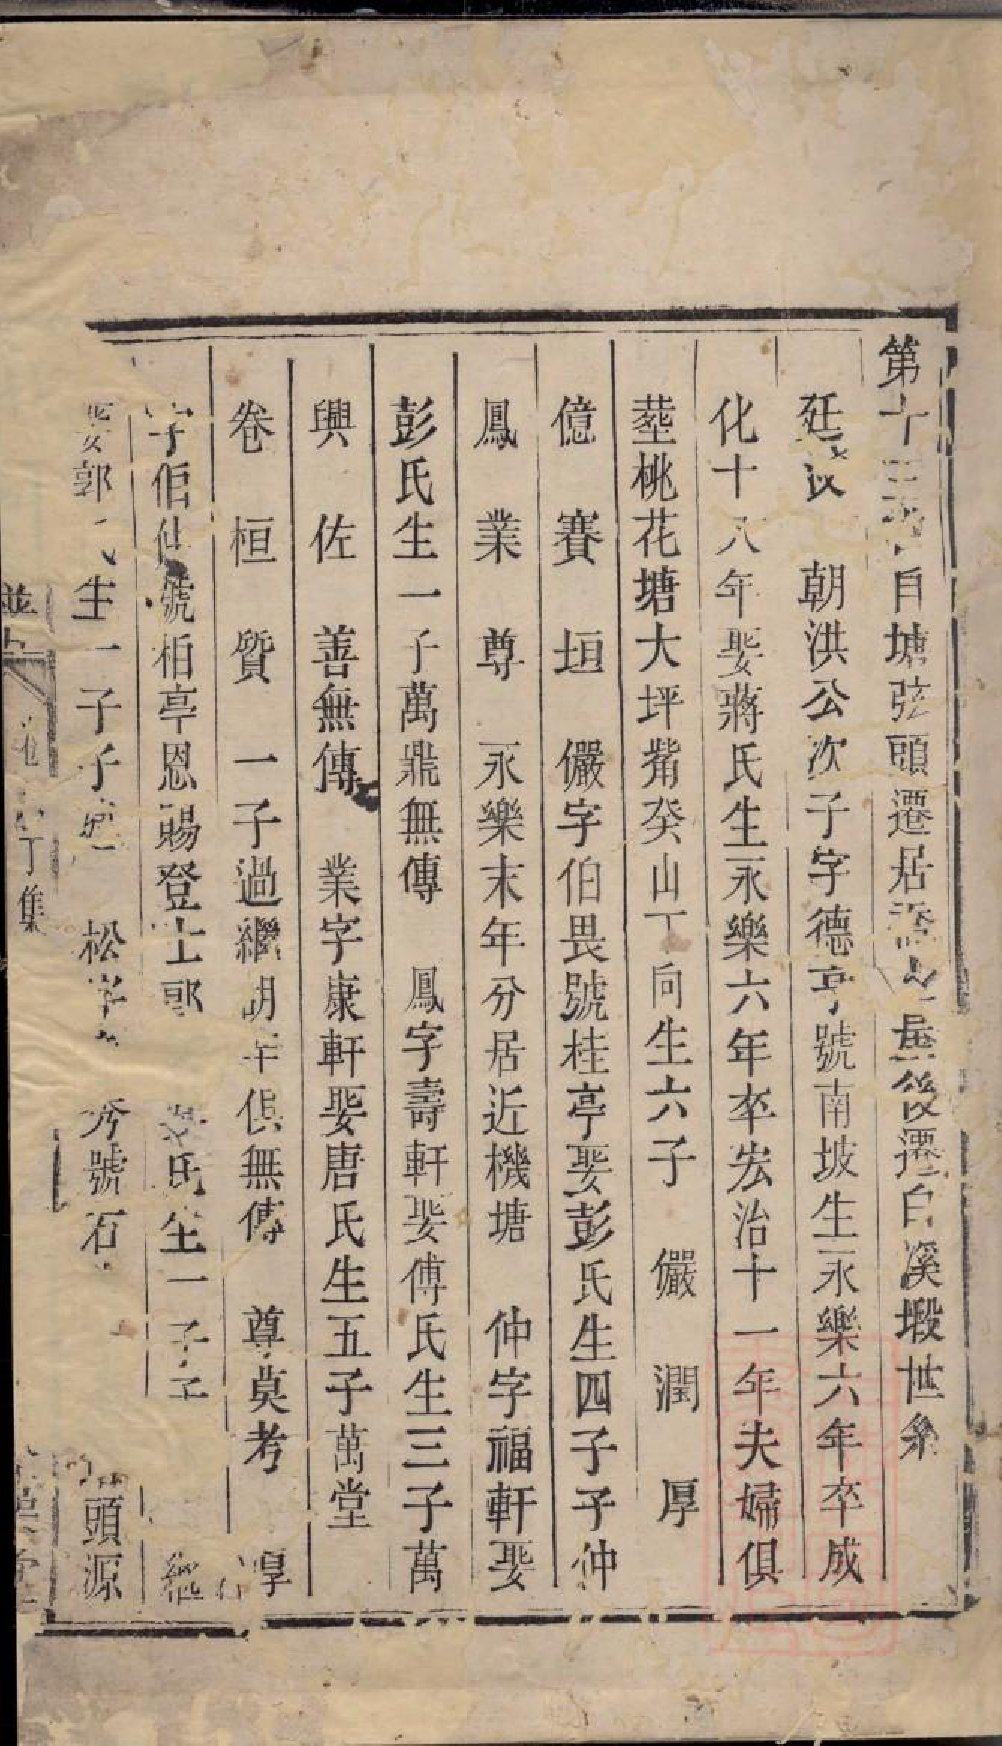 第十三自塘弦頭遷居後遷白溪塅世系
廷 朝洪公次子字德亨號南坡生永樂六年卒成
化十八年娶蔣氏生永樂六年卒宏治十一年夫婦俱
塟桃花塘大坪觜癸山丁向生六子 儼 潤 厚
億 賽 垣 儼字伯畏號桂亭娶彭氏生四子子仲
鳳 業 尊 永樂末年分居近機塘 仲字福軒娶
彭氏生一子萬鼎無傳 鳳字壽軒娶傅氏生三子萬
興 佐 善無傳 業字康軒娶唐氏生五子萬堂
卷 桓 質 一子過繼胡年俱無傳 尊莫考 厚
字佢仙號栢亭恩賜登士郎 氏生一子子
娶郭氏生一子子 松字 秀號石 頭源
丁集